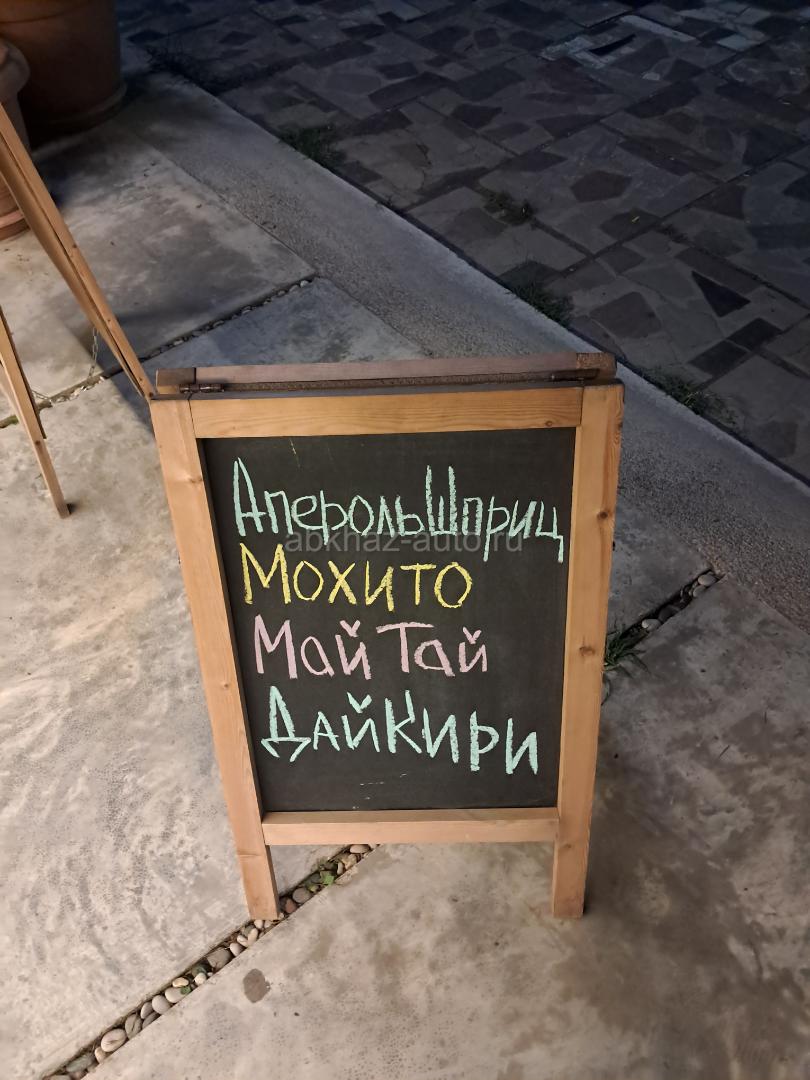 Апероль Шприц
abkhaz-auto.ru
Мохито
Май Тай
Дайкири